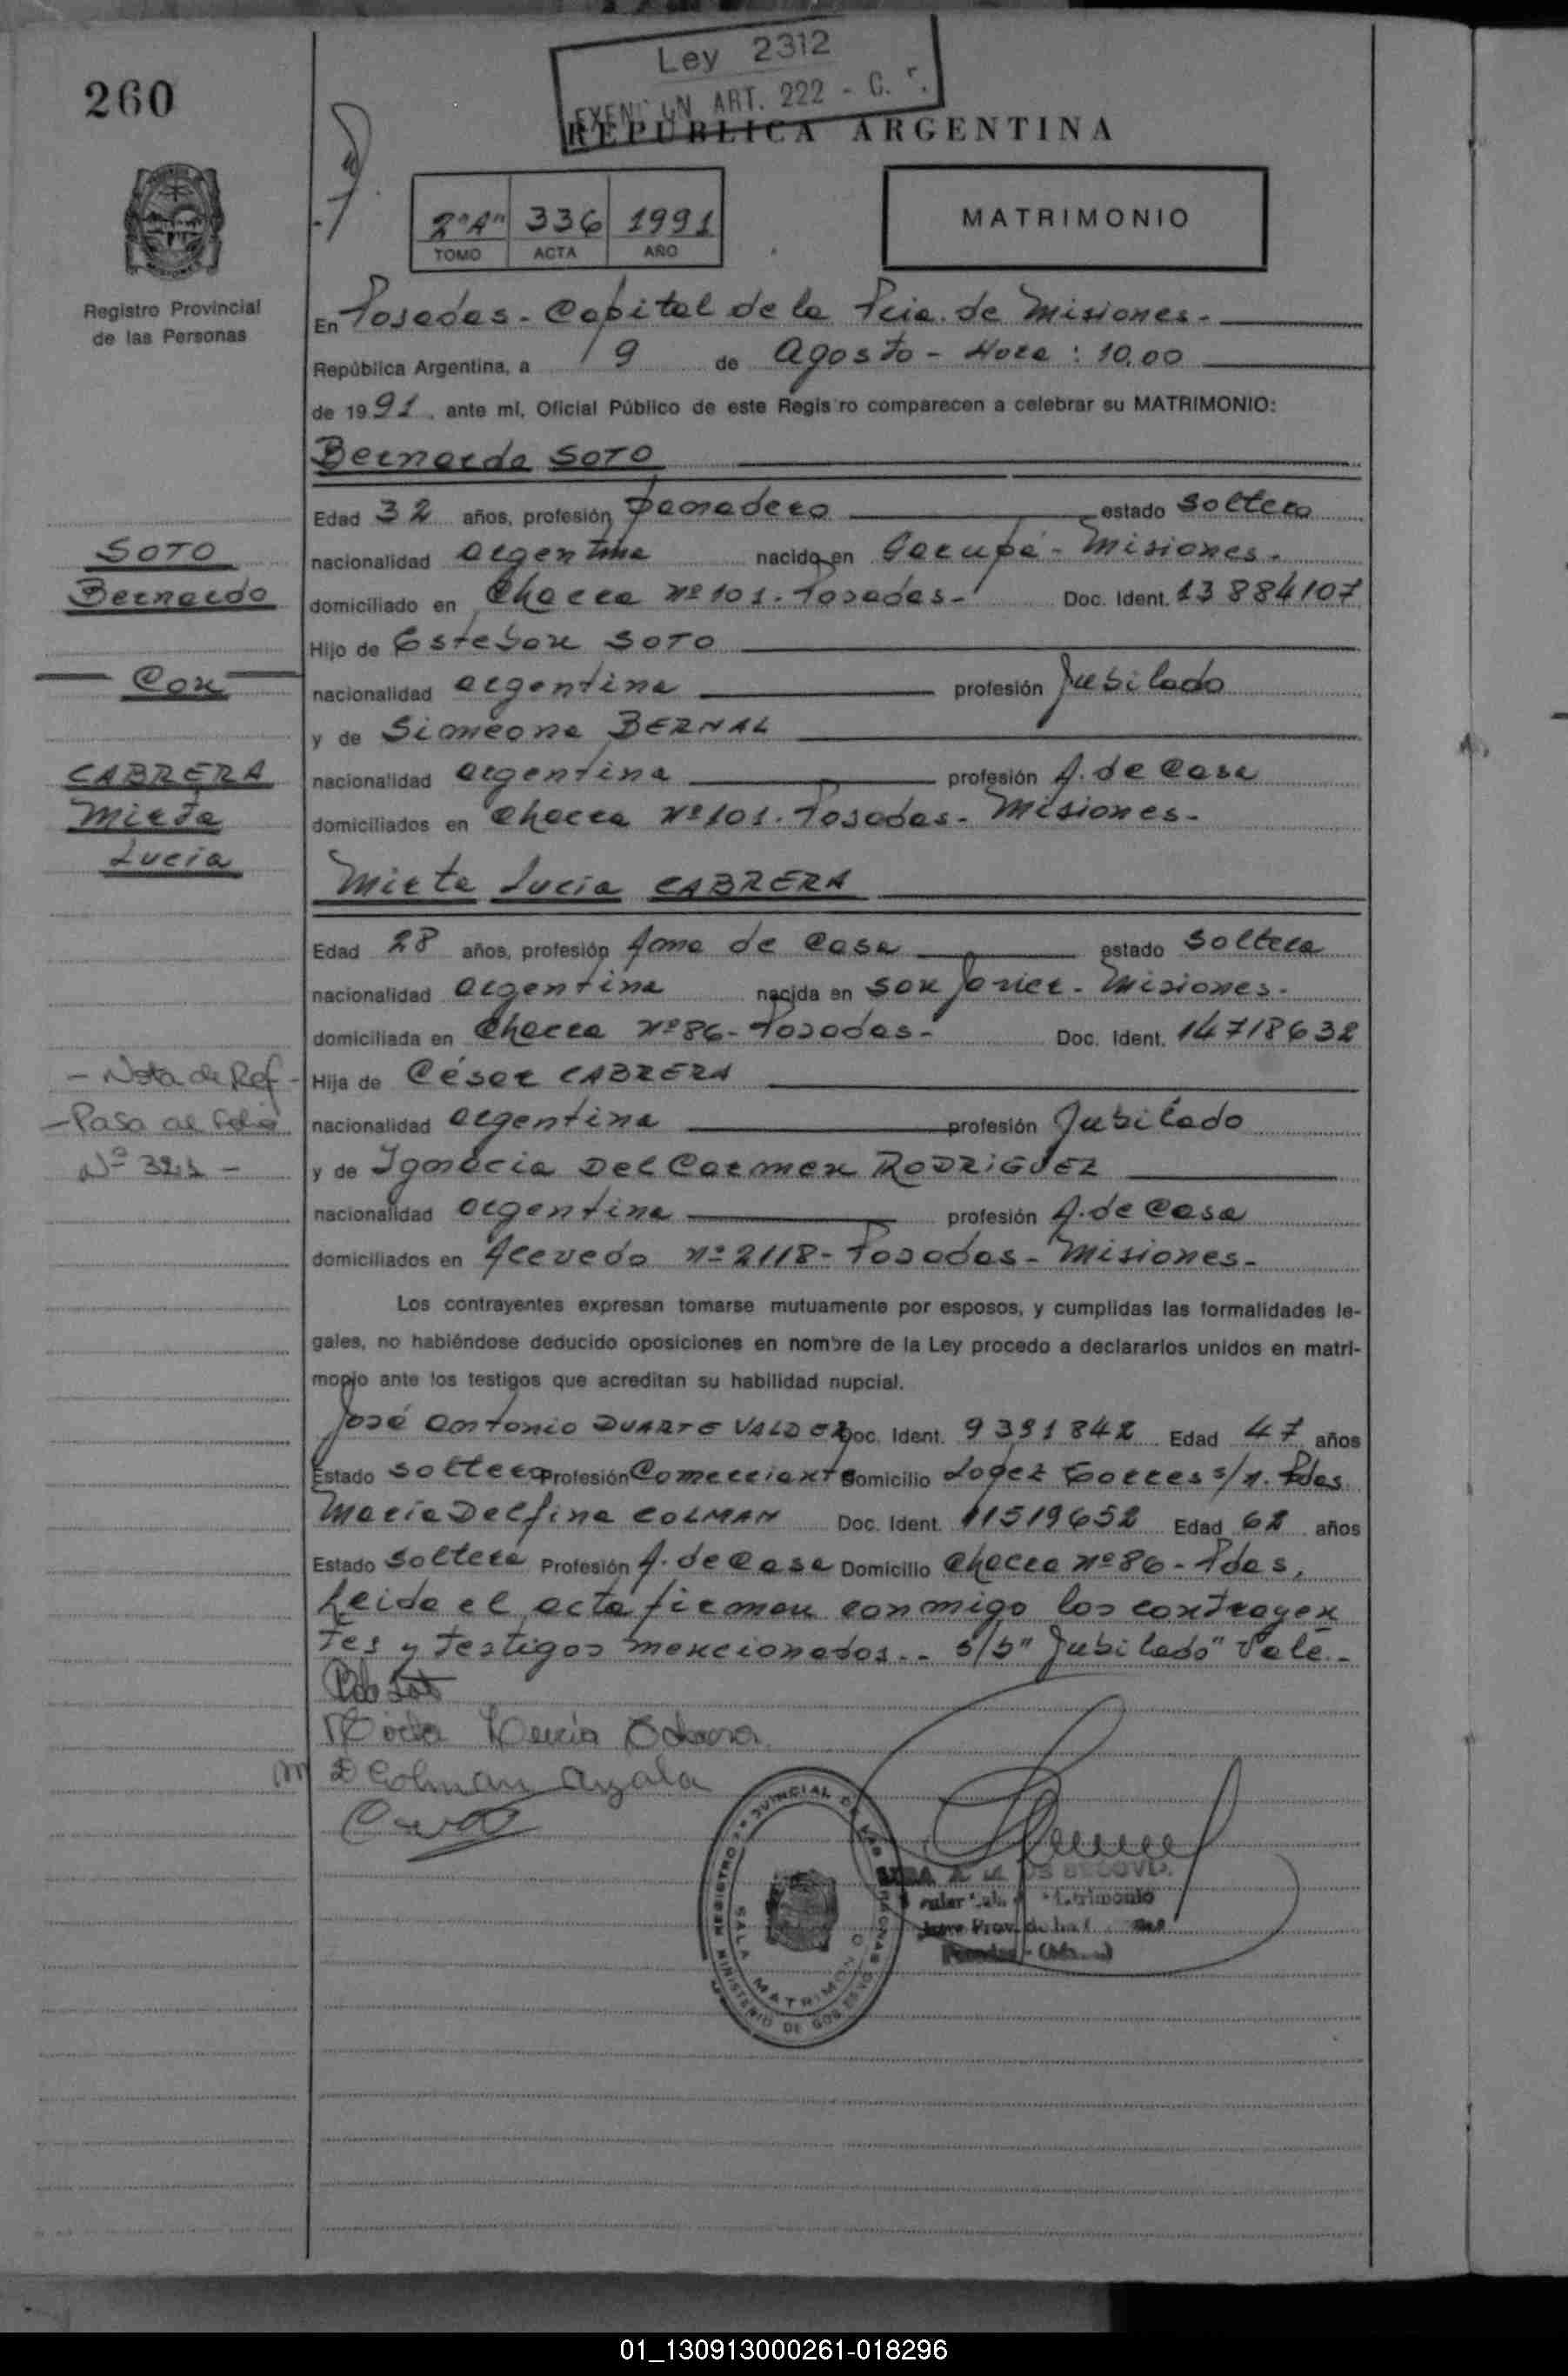 260
Ley 2312
ART. 222 - C.
REPUBLICA ARGENTINA
2º"A" 336 1991
TOMO ACTA AÑO
MATRIMONIO
Registro Provincial
de las Personas
En Posadas - Capital de la Pcia. de Misiones.
República Argentina, a 9 de Agosto - Hora: 10,00
de 1991, ante mí, Oficial Público de este Registro comparecen a celebrar su MATRIMONIO:
Bernardo SOTO
Edad 32 años, profesión panadero estado soltero
nacionalidad argentina nacido en Garupá - Misiones.
domiciliado en Chacra Nº 101. Posadas - Doc. Ident. 13884107
Hijo de Esteban SOTO
nacionalidad argentina profesión Jubilado
y de Simeona BERNAL
nacionalidad argentina profesión A. de Casa
domiciliados en Chacra Nº 101. Posadas - Misiones -
SOTO
Bernardo
Con
CABRERA
Mirta
Lucia
Mirta Lucia CABRERA
Edad 28 años, profesión Ama de Casa estado soltera
nacionalidad argentina nacida en San Javier - Misiones.
domiciliada en Chacra Nº 86 - Posadas - Doc. Ident. 14718632
Hija de César CABRERA
nacionalidad argentina profesión Jubilado
y de Ignacia Del Carmen RODRIGUEZ
nacionalidad argentina profesión A. de Casa
domiciliados en Acevedo Nº 2118 - Posadas - Misiones -
- Nota de Ref -
- Pasa al folio
Nº 321 -
Los contrayentes expresan tomarse mutuamente por esposos, y cumplidas las formalidades le-
gales, no habiéndose deducido oposiciones en nombre de la Ley procedo a declararlos unidos en matri-
monio ante los testigos que acreditan su habilidad nupcial.
José Antonio DUARTE VALDEZ Doc. Ident. 9391842 Edad 47 años
Estado soltero Profesión Comerciante Domicilio Lopez Torres s/n. Pdas
María Delfina COLMAN Doc. Ident. 11519652 Edad 62 años
Estado soltera Profesión A. de Casa Domicilio Chacra Nº 86 - Pdas,
Leida el acta firman conmigo los contrayen
tes y testigos mencionados.- s/b "Jubilado" Vale.-
Mirta Lucia Cabrera
M D Colman Ayala
REGISTRO PROVINCIAL DE LAS PERSONAS
SALA MATRIMONIO
MINISTERIO DE GOBIERNO
01_130913000261-018296